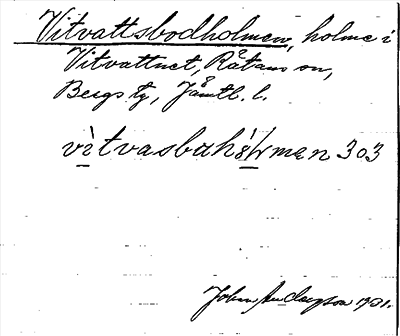 Vitvattsbodholmen, holme i
Vitvattnet, Råtans sn,
Bergs tg, Jämtl. l.
vìtvasbuhòlmen 303
John Andersson 1931.